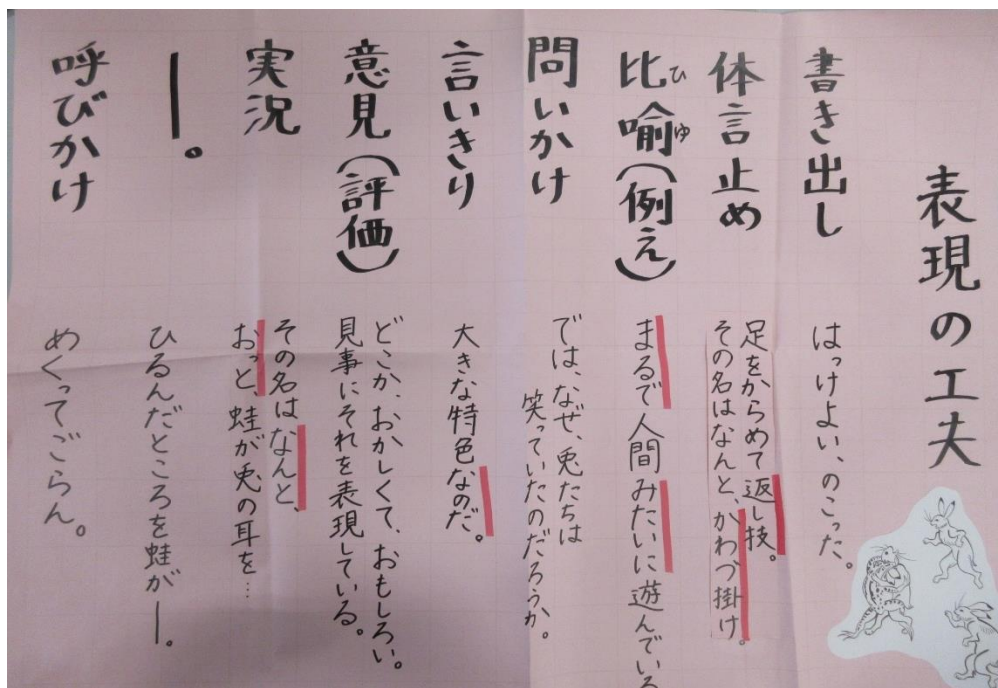 表現の工夫
書き出し
はっけよい、のこった。
体言止め
足をからめて返し技。
その名はなんと、かわづ掛け。
比喩(例え)
ひ
ゆ
まるで人間みたいに遊んでいる
問いかけ
では、なぜ、兎たちは
笑っていたのだろうか。
言いきり
大きな特色なのだ。
意見(評価)
どこか、おかしくて、おもしろい。
見事にそれを表現している。
実況
その名はなんと、
おっと、蛙が兎の耳を…
―。
ひるんだところを蛙が―。
呼びかけ
めくってごらん。